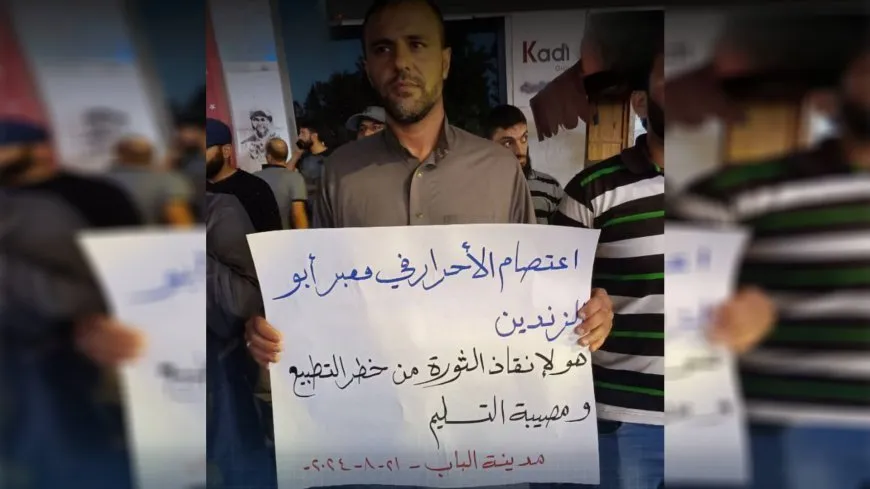 Kadi
اعتصام الأحرار في معبر أبو
الزندين
هو لإنقاذ الثورة من خطر التطبيع
و مصيبة التسليم
مدينة الباب - ٢١-٨-٢٠٢٤-